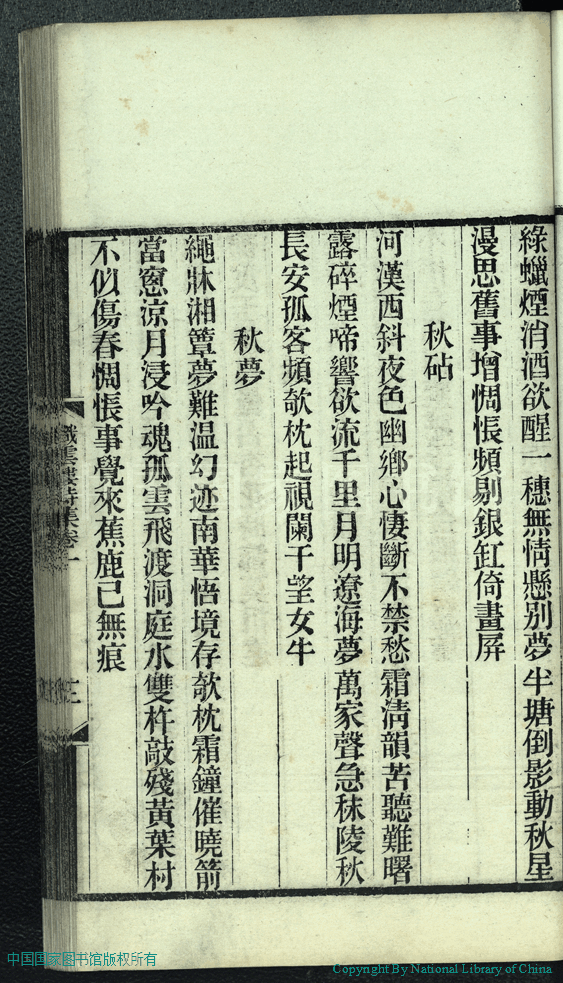 綠蠟煙消酒欲醒一穗無情懸别夢半塘倒影動秋星
漫思舊事增惆悵頻剔銀缸倚畫屏
秋砧
河漢西斜夜色幽鄉心悽斷不禁愁霜淸韻苦聽難曙
露碎煙啼響欲流千里月明遼海夢萬家聲急秣陵秋
長安孤客頻欹枕起視闌干望女牛
秋夢
繩牀湘簟夢難温幻迹南華悟境存欹枕霜鐘催曉箭
當窻涼月浸吟魂孤雲飛渡洞庭水雙杵敲殘黃葉村
不似傷春惆悵事覺來蕉鹿已無痕
織雲樓詩集卷一
三
中国国家图书馆版权所有
Copyright By National Library of China